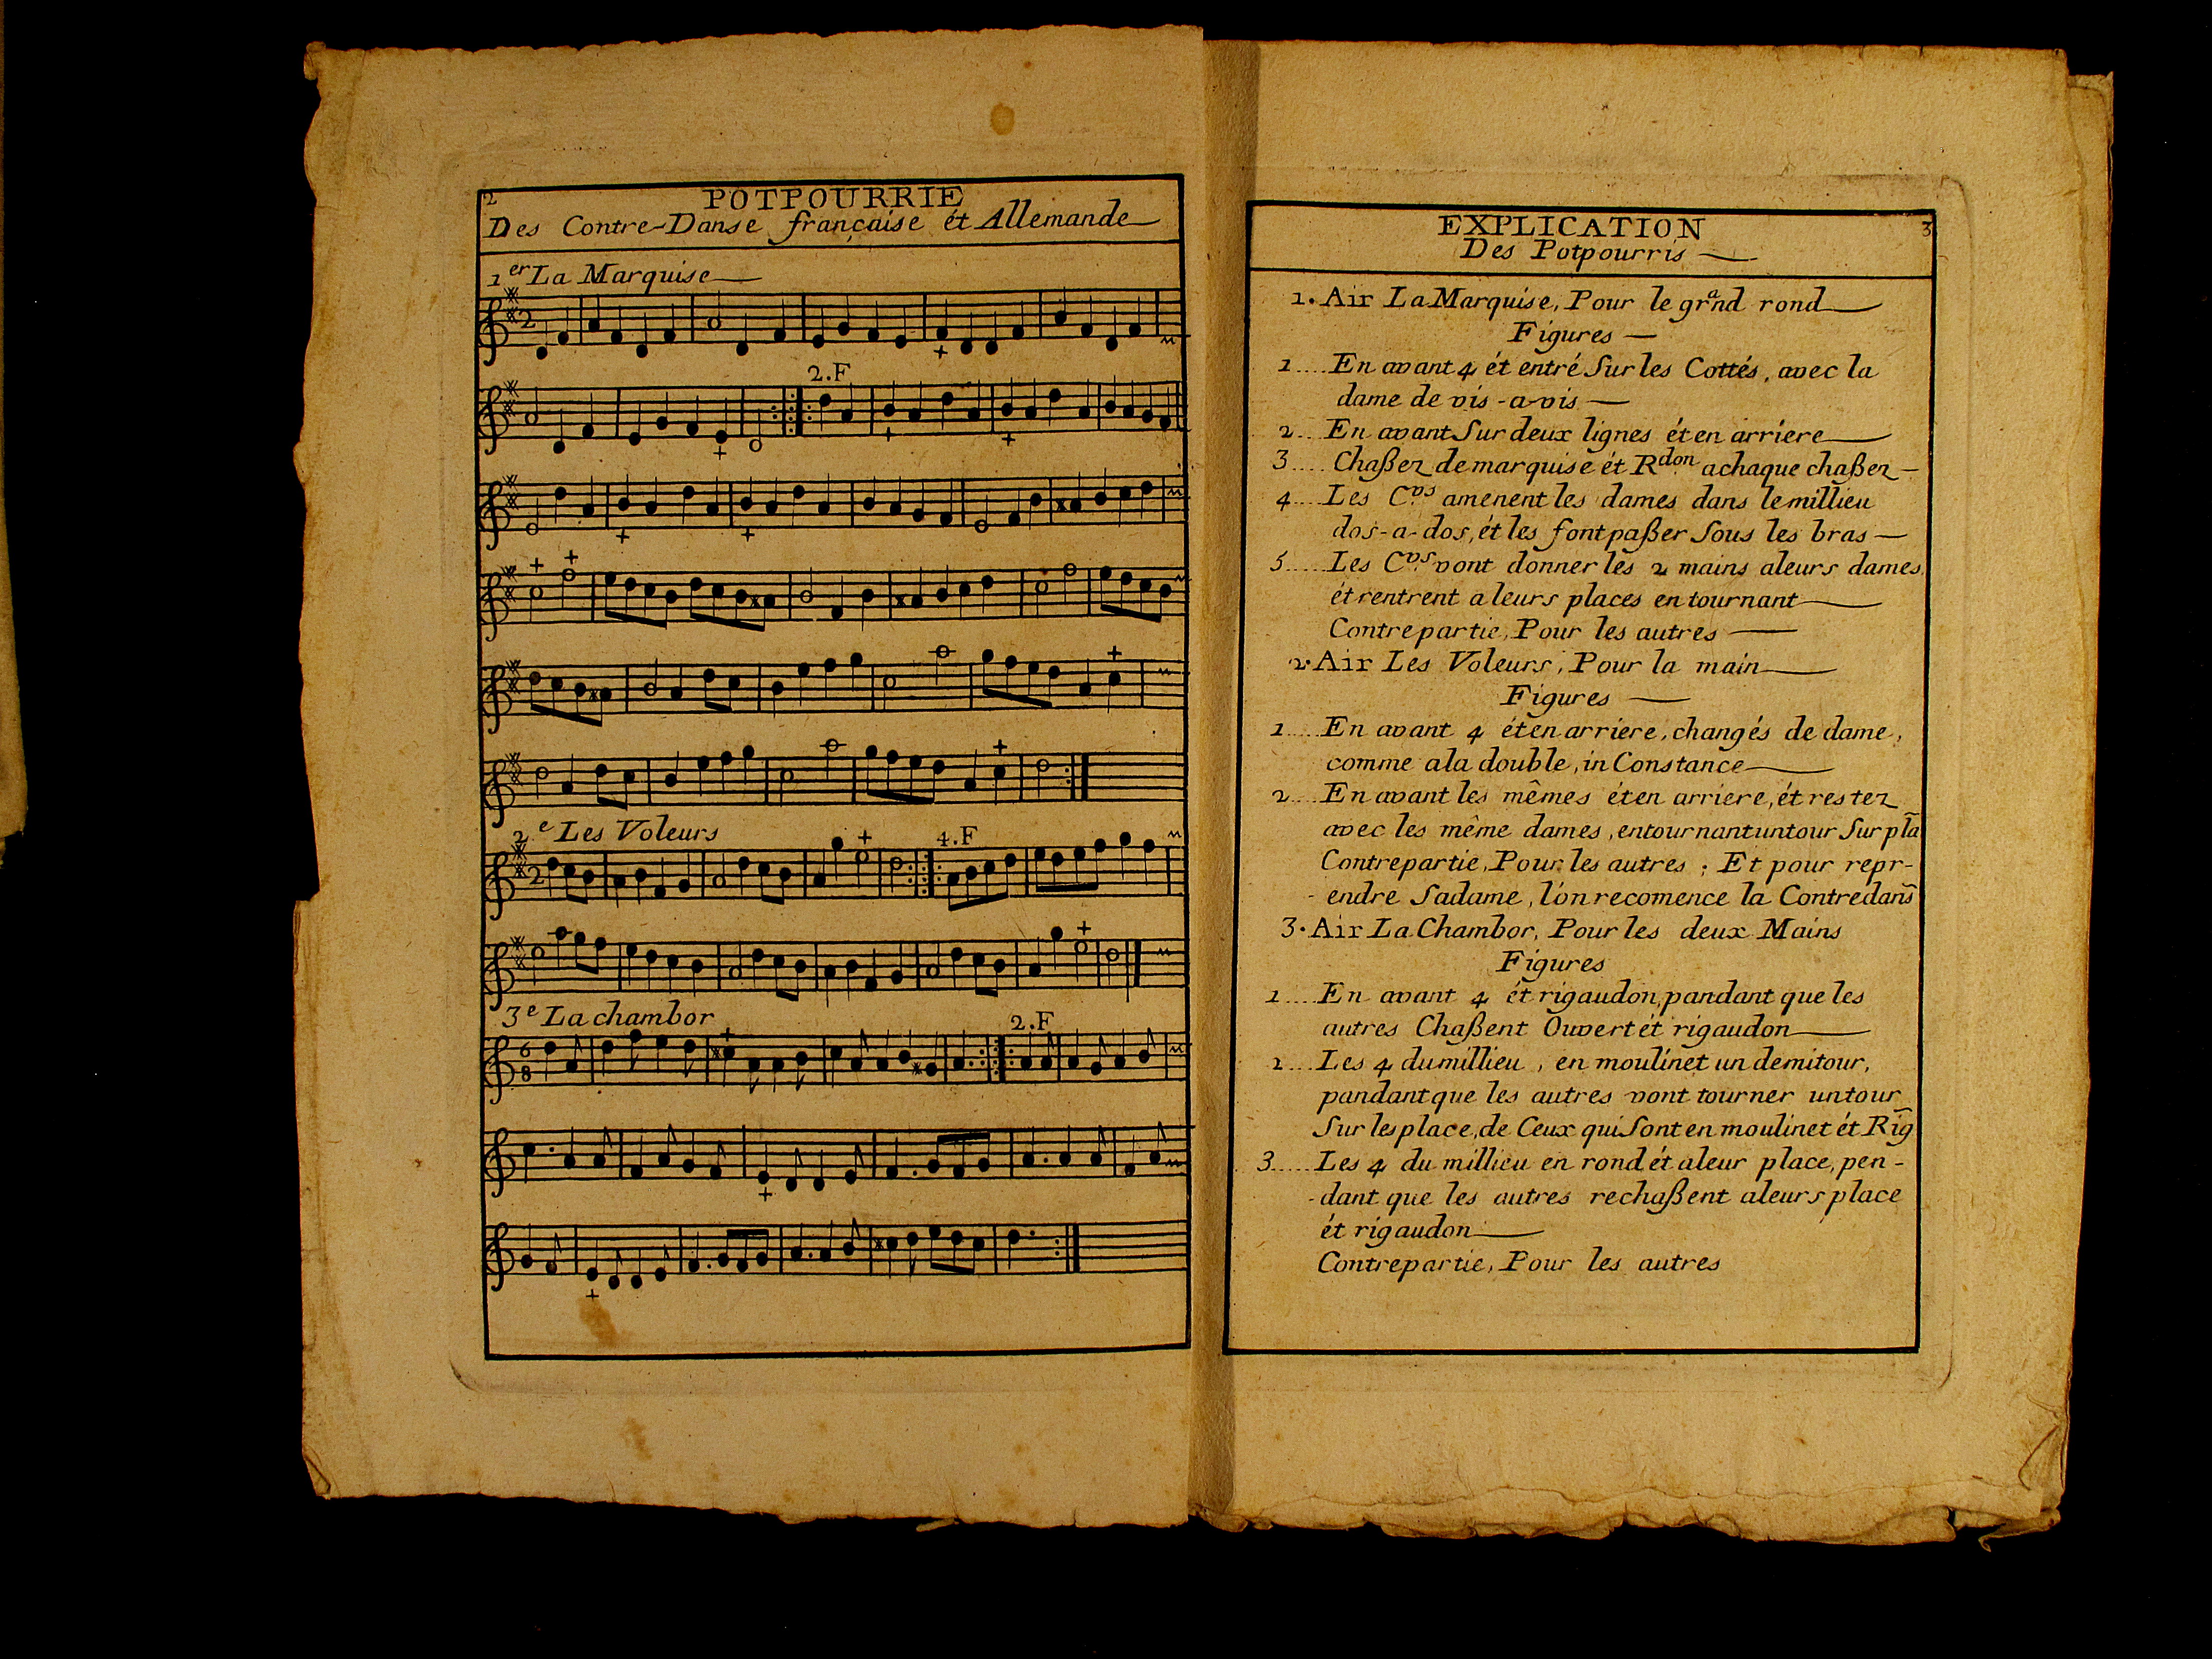 2
POTPOURRIE
Des Contre-Danse française ét Allemande
1er La Marquise
2
2.F
2e Les Voleurs
2
4.F
3e La chambor
2.F
6
8
EXPLICATION
3
Des Potpourris
1. Air La Marquise, Pour le grand rond
Figures
1....En avant 4 ét entré Sur les Cottés, avec la
dame de vis-a-vis
2...En avant Sur deux lignes ét en arriere
3....Chaßez de marquise ét Rdon achaque chaßez
4....Les C.vs amenent les dames dans le millieu
dos-a-dos, ét les font paßer Sous les bras
5....Les C.vs vont donner les 2 mains aleurs dames
ét rentrent a leurs places en tournant
Contrepartie, Pour les autres
2. Air Les Voleurs, Pour la main
Figures
1....En avant 4 ét en arriere, changés de dame,
comme ala double, in Constance
2...En avant les mêmes ét en arriere, ét restez
avec les même dames, entournant un tour Sur pla
Contrepartie, Pour les autres ; Et pour repr-
-endre Sadame, l'on recomence la Contredans̃
3. Air La Chambor, Pour les deux Mains
Figures
1....En avant 4 ét rigaudon, pandant que les
autres Chaßent Ouvert ét rigaudon
2...Les 4 du millieu, en moulinet un demitour,
pandant que les autres vont tourner un tour
Sur les place, de Ceux qui Sont en moulinet ét Rig̃
3....Les 4 du millieu en rond ét aleur place, pen-
-dant que les autres rechaßent aleurs place
ét rigaudon
Contrepartie, Pour les autres